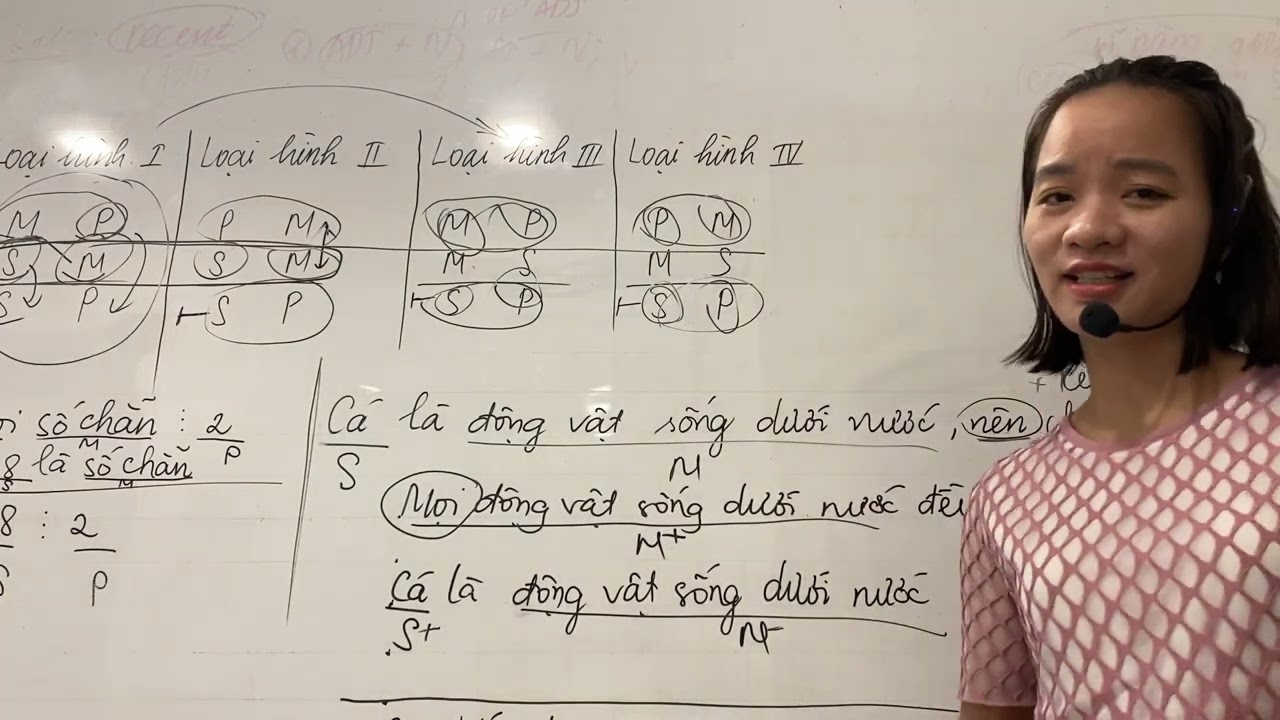 recent
Loại hình I Loại hình II Loại hình III Loại hình IV
M P P M M P P M
S M S M M S M S
S P ⊢ S P ⊢ S P ⊢ S P
số chẵn ⋮ 2
M P
8 là số chẵn
S M
8 ⋮ 2
S P
Cá là động vật sống dưới nước, nên
S M
Mọi động vật sống dưới nước đều
M+
Cá là động vật sống dưới nước
S+ M-